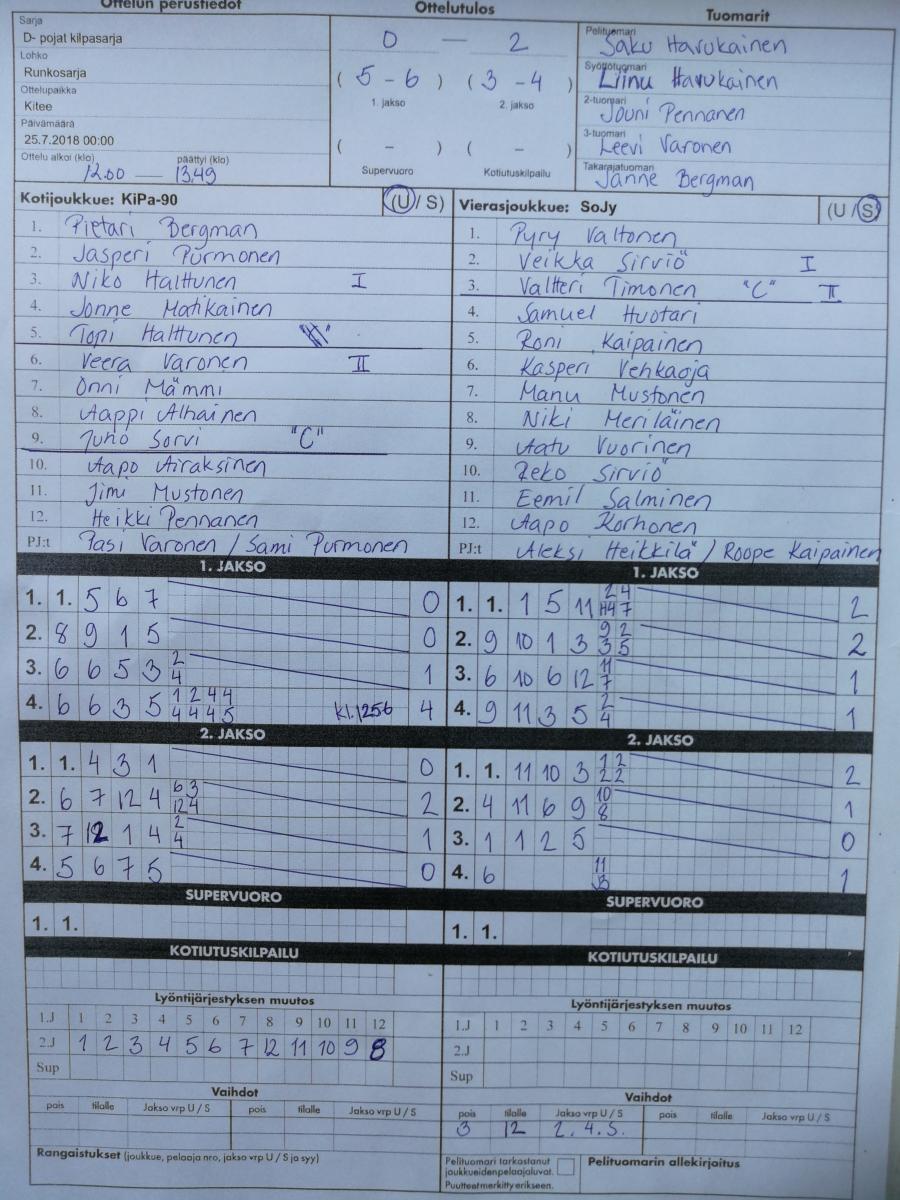 Ottelun perustiedot
Ottelutulos
Tuomarit
Sarja
D- pojat kilpasarja
Lohko
Runkosarja
Ottelupaikka
Kitee
Päivämäärä
25.7.2018 00:00
Ottelu alkoi (klo) päättyi (klo)
12.00 — 13.49
0 — 2
( 5 - 6 ) ( 3 - 4 )
1. jakso 2. jakso
( - ) ( - )
Supervuoro Kotiutuskilpailu
Pelituomari
Saku Harukainen
Syöttötuomari
Liinu Harukainen
2-tuomari
Jouni Pennanen
3-tuomari
Leevi Varonen
Takarajatuomari
Janne Bergman
Kotijoukkue: KiPa-90 (U / S)
1. Pietari Bergman
2. Jasperi Purmonen
3. Niko Halttunen I
4. Jonne Matikainen
5. Topi Halttunen
6. Veera Varonen II
7. Onni Mämmi
8. Aappi Alhainen
9. Juho Sorvi "C"
10. Aapo Airaksinen
11. Jimi Mustonen
12. Heikki Pennanen
PJ:t Pasi Varonen / Sami Purmonen
Vierasjoukkue: SoJy (U / S)
1. Pyry Valtonen
2. Veikka Sirviö I
3. Valtteri Timonen "C" II
4. Samuel Huotari
5. Roni Kaipainen
6. Kasperi Vehkaoja
7. Manu Mustonen
8. Niki Meriläinen
9. Aatu Vuorinen
10. Reko Sirviö
11. Eemil Salminen
12. Aapo Korhonen
PJ:t Aleksi Heikkilä / Roope Kaipainen
1. JAKSO
1. 1. 5 6 7 0
2. 8 9 1 5 0
3. 6 6 5 3 2 4 1
4. 6 6 3 5 1 2 4 4 4 4 4 5 kl. 1256 4
1. JAKSO
1. 1. 1 5 11 2 4 4 7 2
2. 9 10 1 3 9 2 3 5 2
3. 6 10 6 12 11 7 1
4. 9 11 3 5 2 4 1
2. JAKSO
1. 1. 4 3 1 0
2. 6 7 12 4 6 3 12 4 2
3. 7 12 1 4 2 4 1
4. 5 6 7 5 0
2. JAKSO
1. 1. 11 10 3 1 2 2 2 2
2. 4 11 6 9 10 8 1
3. 1 1 2 5 0
4. 6 11 1
SUPERVUORO
1. 1.
SUPERVUORO
1. 1.
KOTIUTUSKILPAILU
KOTIUTUSKILPAILU
Lyöntijärjestyksen muutos
1.J 1 2 3 4 5 6 7 8 9 10 11 12
2.J 1 2 3 4 5 6 7 12 11 10 9 8
Sup
Lyöntijärjestyksen muutos
1.J 1 2 3 4 5 6 7 8 9 10 11 12
2.J
Sup
Vaihdot
pois tilalle Jakso vrp U / S pois tilalle Jakso vrp U / S
Vaihdot
pois tilalle Jakso vrp U / S pois tilalle Jakso vrp U / S
3 12 2. 4. S.
Rangaistukset (joukkue, pelaaja nro, jakso vrp U / S ja syy)
Pelituomari tarkastanut
joukkueidenpelaajaluvat.
Puutteet merkitty erikseen.
Pelituomarin allekirjoitus